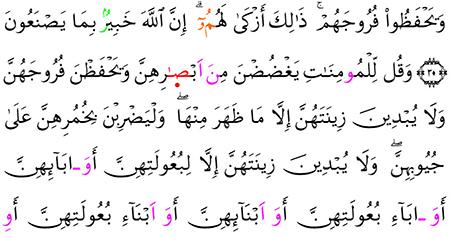 وَيَحْفَظُواْ فُرُوجَهُمْ ۚ ذَٰلِكَ أَزْكَىٰ لَهُمُۥٓ ۗ إِنَّ ٱللَّهَ خَبِيرُۢ بِمَا يَصْنَعُونَ
﴿٣٠﴾ وَقُل لِّلْمُومِنَٰتِ يَغْضُضْنَ مِنَ اَبْصَٰرِهِنَّ وَيَحْفَظْنَ فُرُوجَهُنَّ
وَلَا يُبْدِينَ زِينَتَهُنَّ إِلَّا مَا ظَهَرَ مِنْهَا ۖ وَلْيَضْرِبْنَ بِخُمُرِهِنَّ عَلَىٰ
جُيُوبِهِنَّ ۖ وَلَا يُبْدِينَ زِينَتَهُنَّ إِلَّا لِبُعُولَتِهِنَّ أَوَ ـ ابَآئِهِنَّ
أَوَ ـ ابَآءِ بُعُولَتِهِنَّ أَوَ اَبْنَآئِهِنَّ أَوَ اَبْنَآءِ بُعُولَتِهِنَّ أَوِ